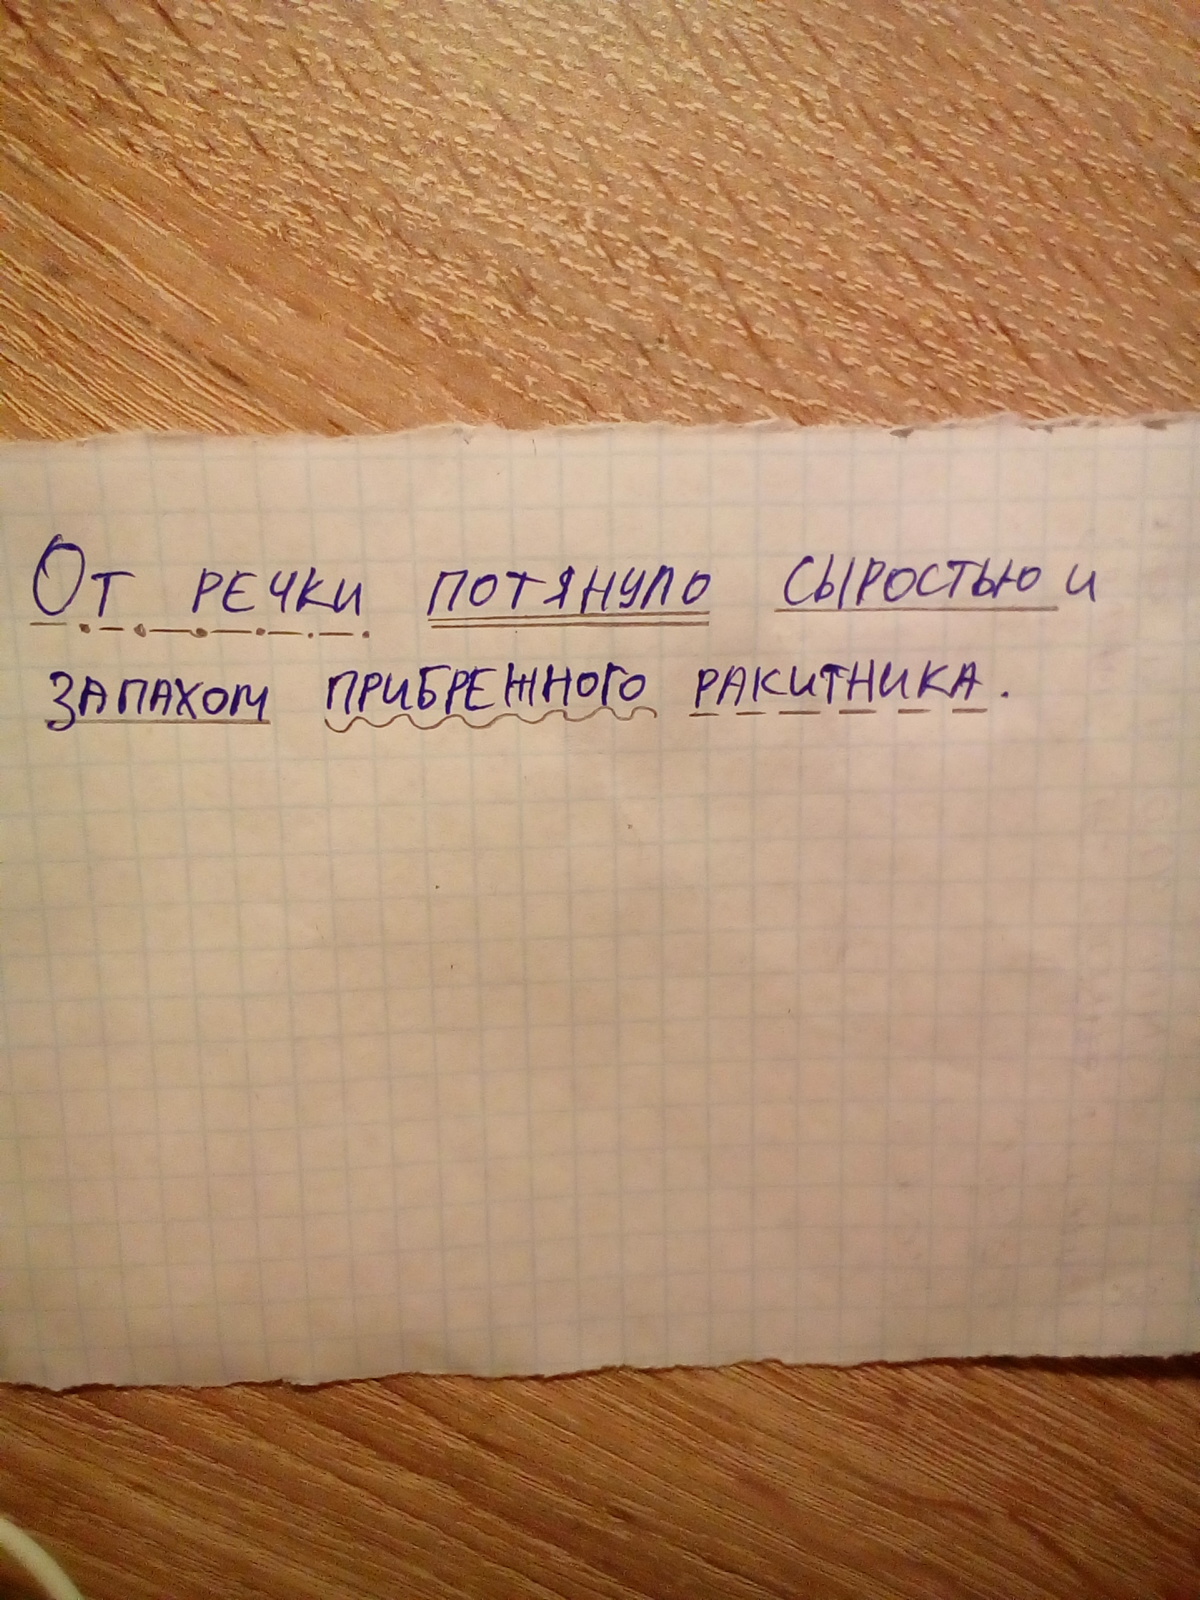 От речки потянуло сыростью и
запахом прибрежного ракитника.